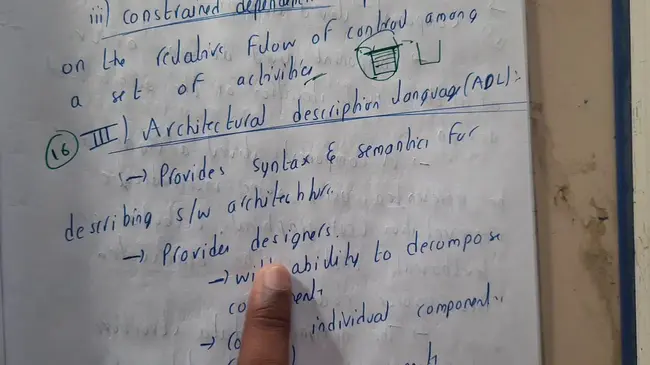 iii) constrained dependenc
on the relative flow of control among
a set of activities
16 III) Architectural description language (ADL):-
→ Provides syntax & semantics for
describing s/w architechture.
→ Provides designers.
→ with ability to decompose
→ individual component.